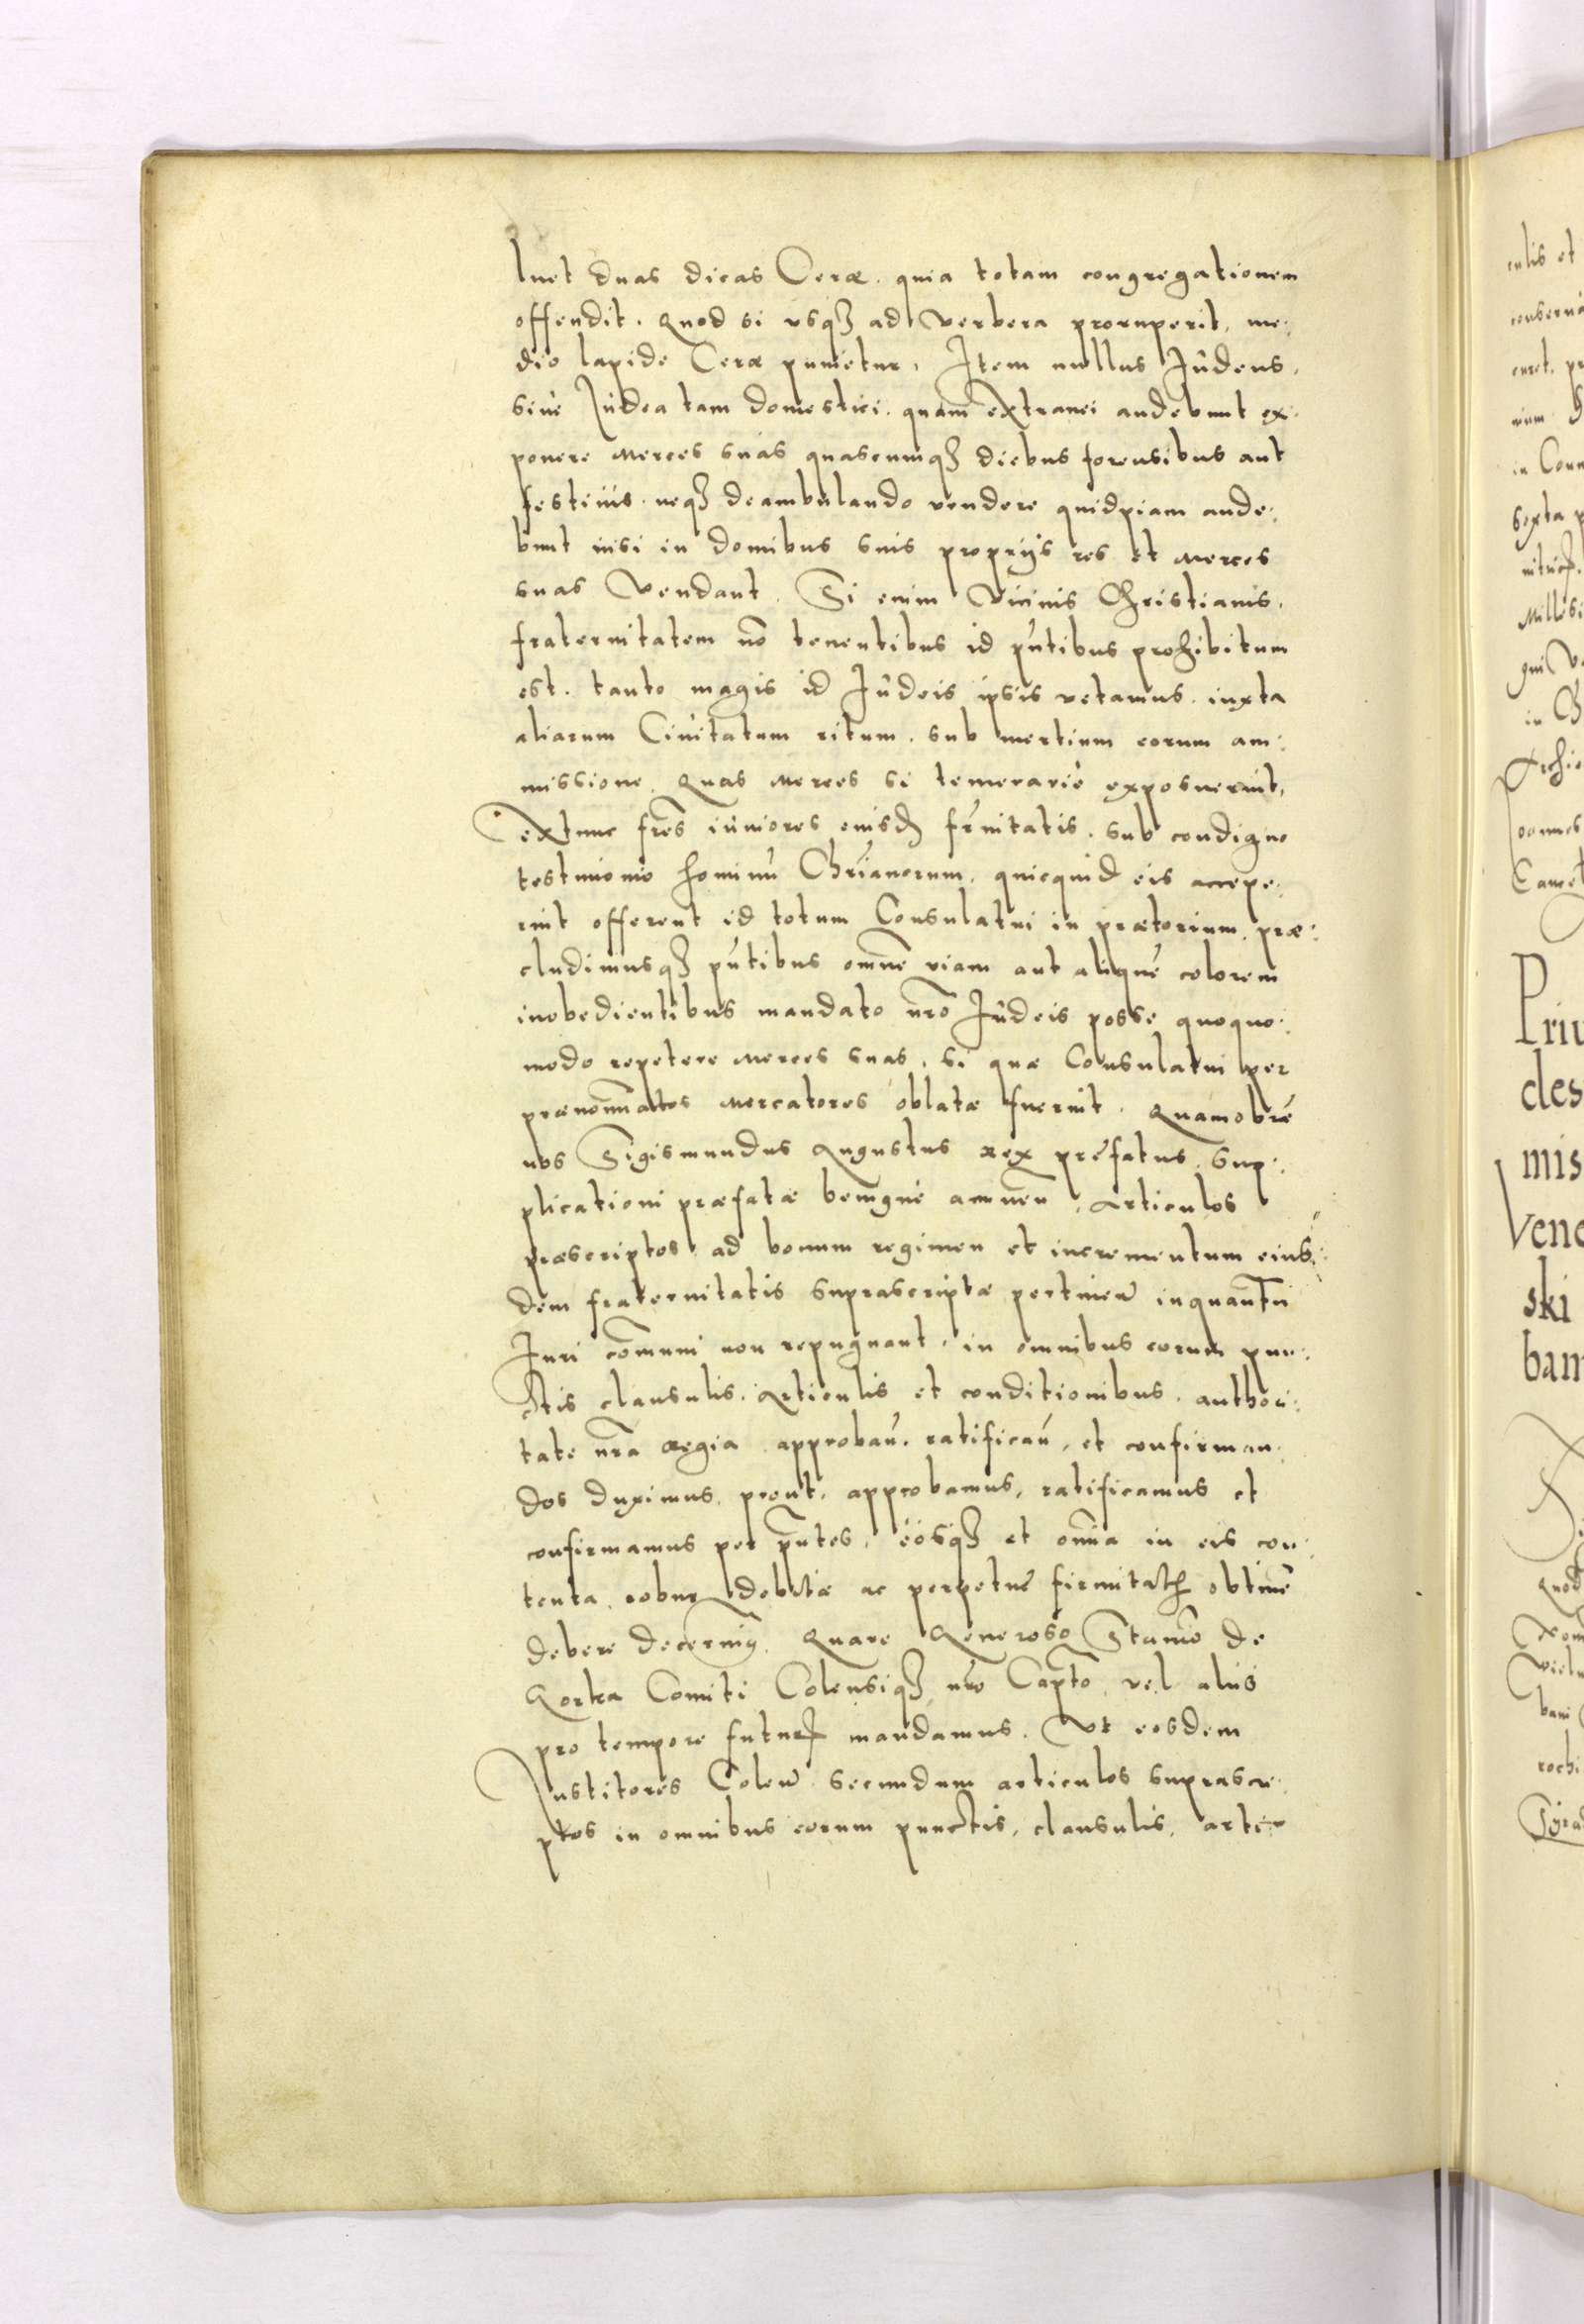 luet duas dicas Ceræ. quia totam congregationem
offendit. Quod si usqꝫ ad verbera proruperit, me:
dio lapide Ceræ punietur, Item nullus Iudeus,
siue Iudea tam domestici. quam extranei audebunt ex:
ponere merces suas quascumqꝫ diebus forensibus aut
festiuis. neqꝫ deambulando vendere quidpiam aude:
bunt nisi in domibus suis proprijs res et merces
suas vendant. Si enim vicinis Christianis,
fraternitatem nō tenentibus id pn̄tibus prohibitum
est. tanto magis id Iudeis ipsis vetamus. iuxta
aliarum Ciuitatum ritum. sub mertium eorum am:
missione. Quas merces si temerarie exposuerint,
extunc fr̄es iuniores eiusd fr̄nitatis. sub condigno
testimonio hominū Chr̄ianorum. quicquid eis accepe:
rint offerent id totum Consulatui in prætorium. præ:
cludimusqꝫ pn̄tibus omnē viam aut aliquē colorem
inobedientibus mandato nr̄o Iudeis posse quoquo:
modo repetere merces suas. si quæ Consulatui per
prænominatos mercatores oblatæ fuerint. Quamobrē
nos Sigismundus Augustus rex prefatus. sup:
plicationi præfatæ benigne annuen̄, articulos
præscriptos ad bonum regimen et incrementum eius:
dem fraternitatis suprascriptæ pertinen̄ inquantū
Iuri cōmuni non repugnant. in omnibus eorum pun:
ctis clausulis. articulis et conditionibus. authori:
tate nr̄a regia approbań. ratificań, et confirman:
dos duximus. prout. approbamus, ratificamus et
confirmamus per pn̄tes, eosqꝫ et omnia in eis con:
tenta. robur debitæ ac perpetuē firmitatꝭ obtinē
debere decernimꝰ. Quare Generoso Stanisō de
Gorka Comiti Colensiqꝫ nr̄o Captō vel alijs
pro tempore futuris mandamus. Vt eosdem
Institores Colen̄ secundum articulos suprascri:
ptos in omnibus eorum punctis, clausulis, arti: